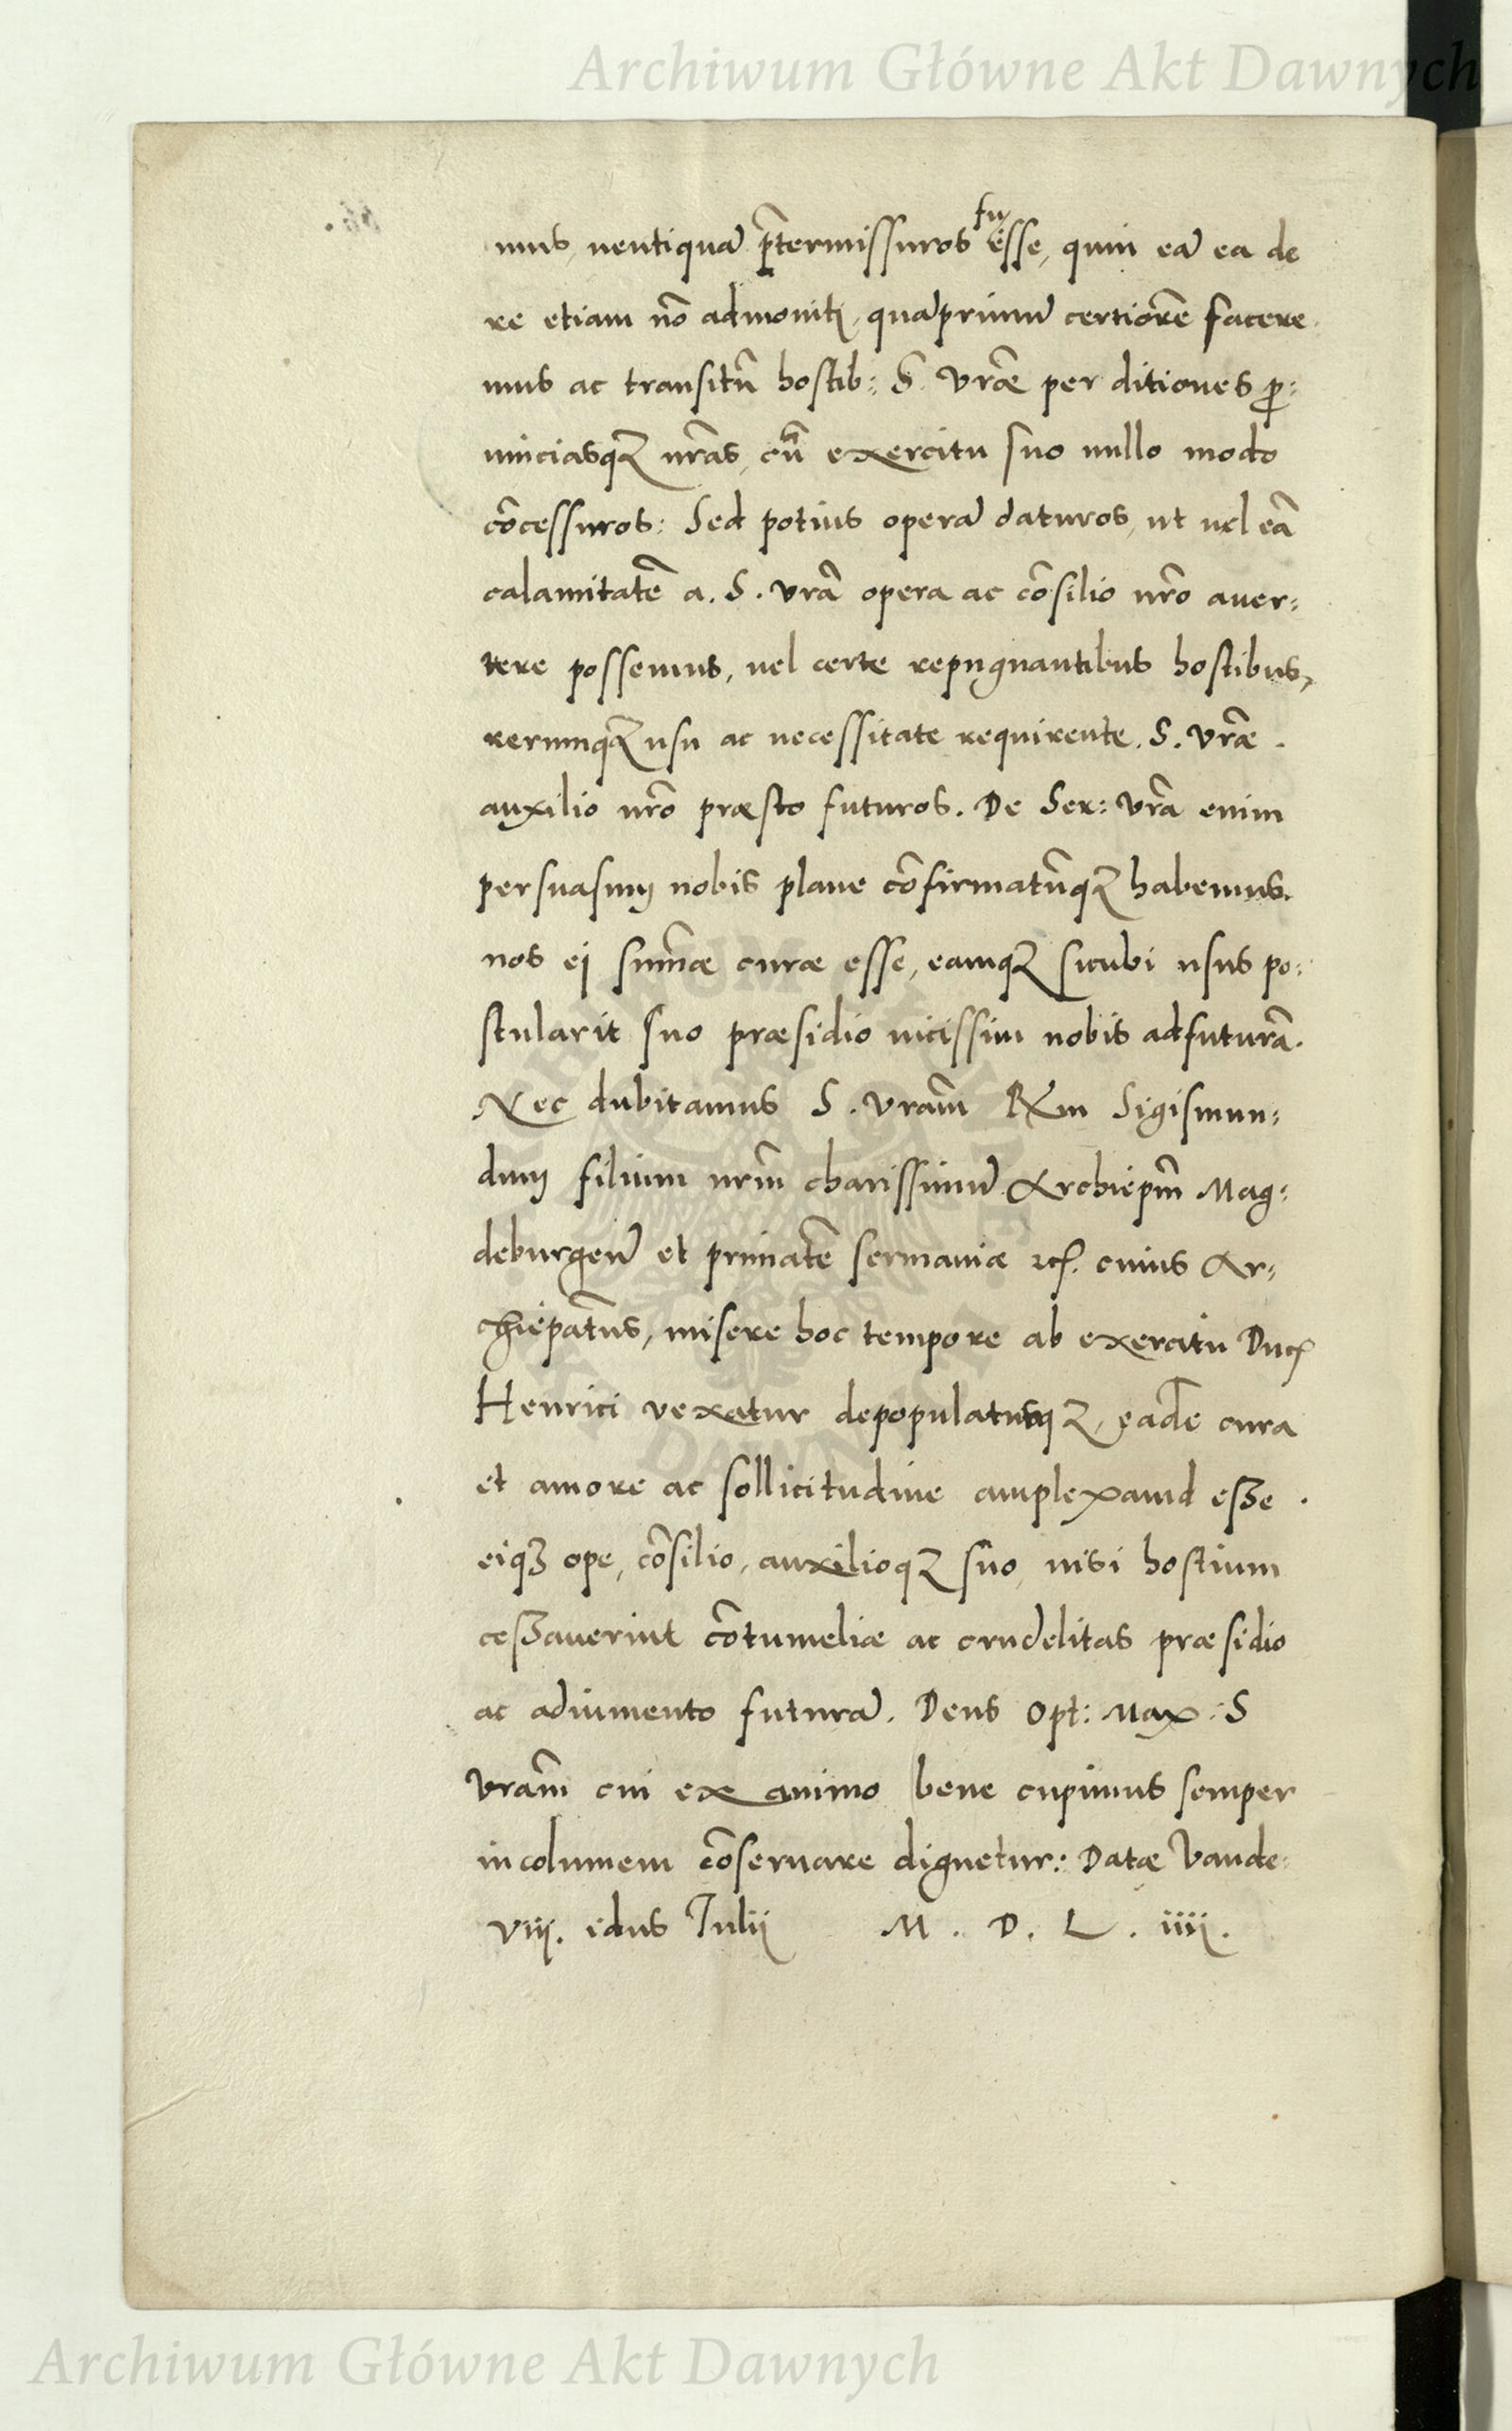 Archiwum Główne Akt Dawnych
mus, neutiquã p̃termissuros fuisse, quin eã ea de
re etiam nõ admoniti, quãprimũ certiorẽ facere
mus ac transitũ hostib: S. Vrãe per ditiones pro:
uinciasq₃ nrãs, cũ exercitu suo nullo modo
cõcessuros: Sed potius operã daturos, ut uel eã
calamitatẽ a. S. Vrã opera ac cõsilio nrõ auer:
tere possemus, uel certe repugnantibus hostibus,
rerumq₃ usu ac necessitate requirente. S. Vrãe.
auxilio nrõ præsto futuros. De Ser: Vrã enim
persuasum nobis plane cõfirmatũq₃ habemus.
nos ei sum̃æ curæ esse, eamq₃ sicubi usus po:
stularit suo præsidio uicissim nobis adfuturã.
Nec dubitamus S. Vrãm Rm̃ Sigismun:
dum filium nrm̃ charissimũ Archiepm̃ Mag:
deburgeñ et primatẽ Germaniæ etc. cuius Ar:
chiepatũs, misere hoc tempore ab exercitu Ducis
Henrici vexatur depopulaturq₃, eadẽ cura
et amore ac sollicitudine amplexand esse.
eiq₃ ope, cõsilio, auxilioq₃ suo, nisi hostium
cessauerint cõtumeliæ ac crudelitas præsidio
ac adiumento futurã. Deus Opt: Max: S
Vrãm cui ex animo bene cupimus semper
incolumem cõseruare dignetur: Datæ Vandе:
viij. idus Julij M. D. L. iiij.
Archiwum Główne Akt Dawnych